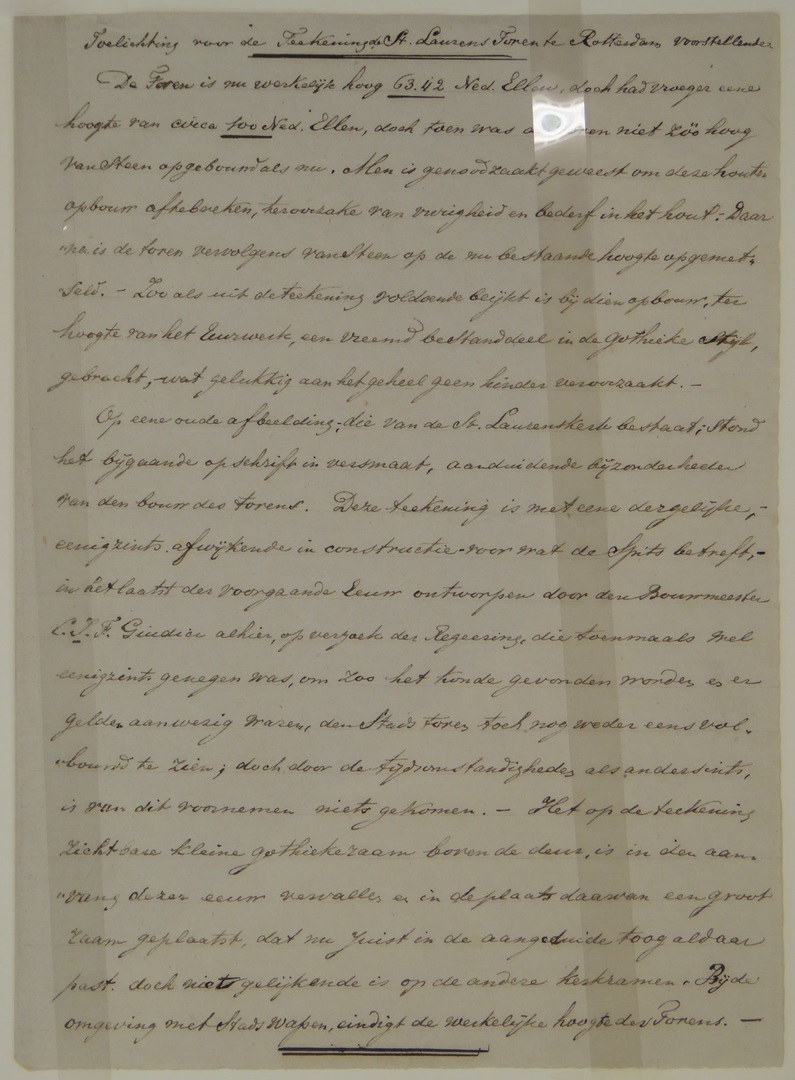 Toelichting voor de Teekening, de St. Laurens Toren te Rotterdam voorstellende
De Toren is nu werkelijk hoog 63.42 Ned. Ellen, doch had vroeger eene
hoogte van circa 100 Ned. Ellen, doch toen was niet zóo hoog
van Steen opgebouwd als nu. Men is genoodzaakt geweest om deze houten
opbouw aftebreken, teroorzake van vurigheid en bederf in het hout. Daar
"na is de toren vervolgens van Steen op de nu bestaande hoogte opgemet-
"seld. – Zoo als uit de teekening voldoende blijkt is bij dien opbouw, ter
hoogte van het Uurwerk, een vreemd bestanddeel in de gothieke Styl,
gebracht, wat gelukkig aan het geheel geen hinder veroorzaakt. –
Op eene oude afbeelding, die van de St. Laurenskerk bestaat, stond
het bijgaande opschrift in versmaat, aanduidende bijzonderheden
van den bouw des torens. Deze teekening is met eene dergelijke, –
eenigzints afwijkende in constructie voor wat de Spits betreft, –
in het laatst der voorgaande Eeuw ontworpen door den Bouwmeester
C.I.F. Giudici alhier, op verzoek der Regeering, die toenmaals wel
eenigzints genegen was, om zoo het konde gevonden worden en er
gelden aanwezig waren, den Stads toren toch nog weder eens vol-
"bouwd te zien; doch door de tijdsomstandigheden als andersints,
is van dit voornemen niets gekomen. – Het op de teekening
zichtbare kleine gothieke raam boven de deur, is in den aan-
"vang dezer eeuw vervallen en in de plaats daarvan een groot
raam geplaatst, dat nu juist in de aangeduide toog aldaar
past. doch niets gelijkende is op de andere kerkramen. Bij de
omgeving met Stads Wapen, eindigt de werkelijke hoogte des Torens. –